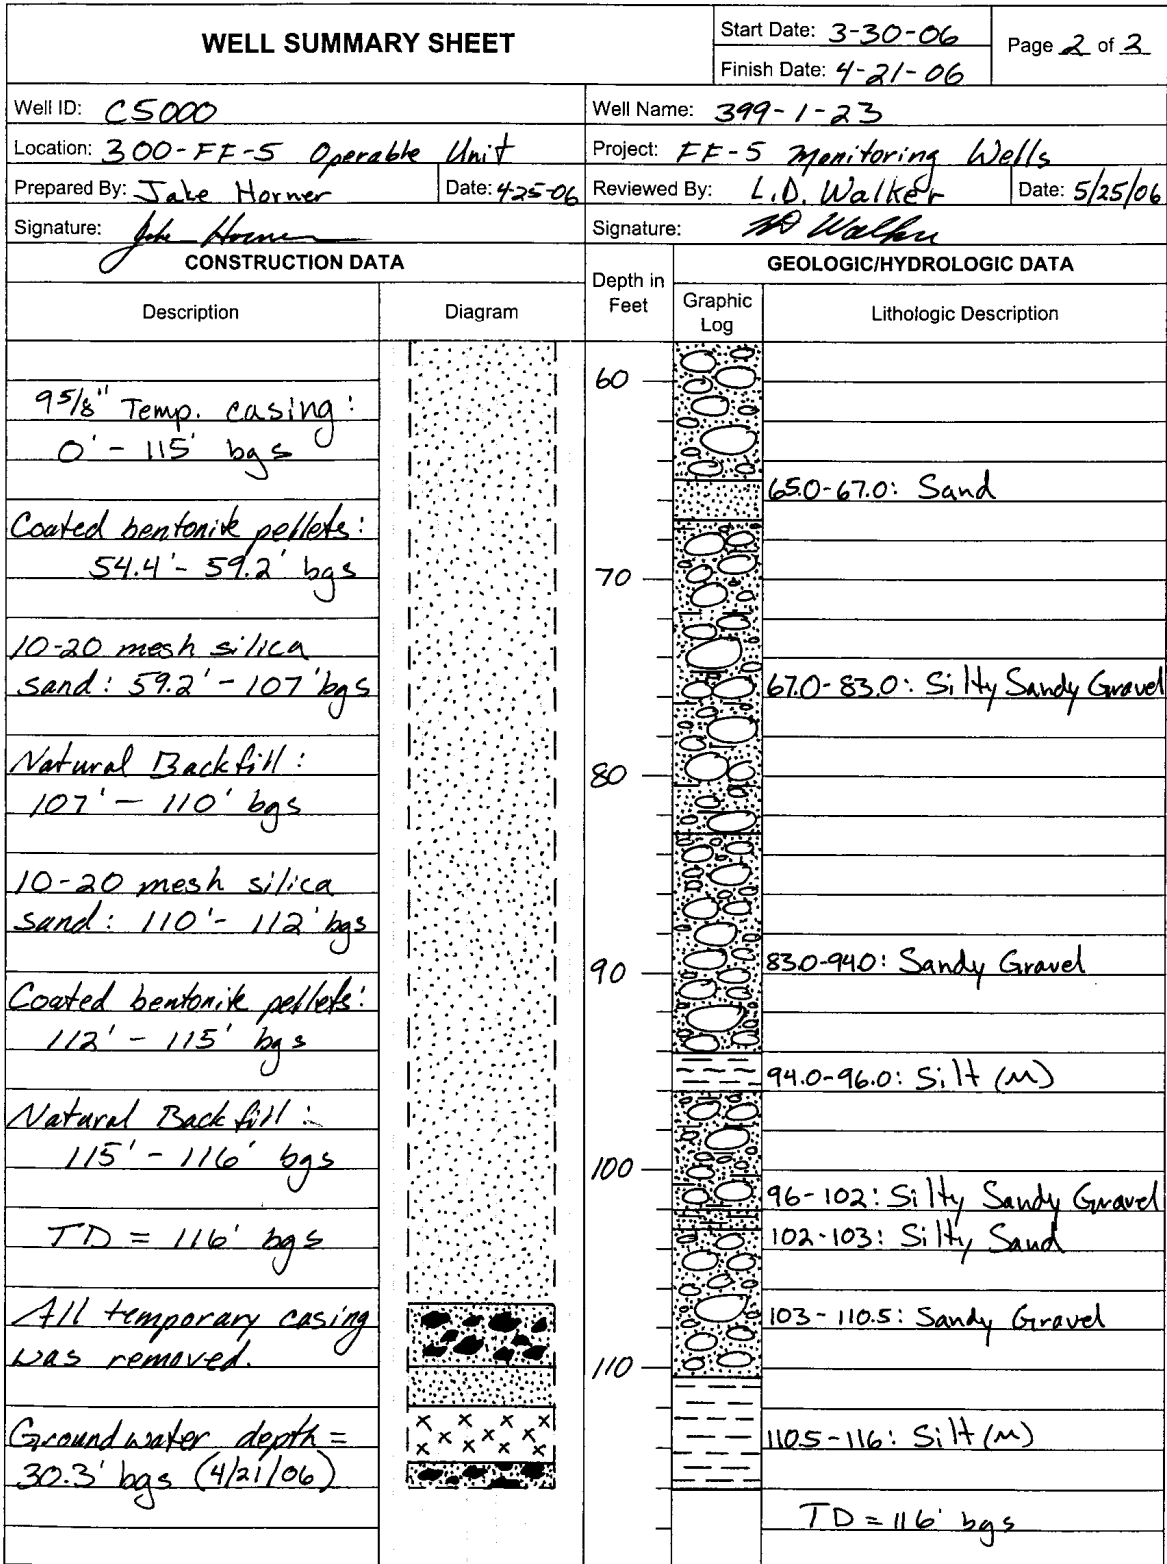 WELL SUMMARY SHEET
Start Date: 3-30-06
Finish Date: 4-21-06
Page 2 of 2
Well ID: C5000
Well Name: 399-1-23
Location: 300-FF-5 Operable Unit
Project: FF-5 Monitoring Wells
Prepared By: Jake Horner
Date: 4-25-06
Reviewed By: L.D. Walker
Date: 5/25/06
Signature: Jake Horner
Signature: LD Walker
CONSTRUCTION DATA
Depth in
Feet
GEOLOGIC/HYDROLOGIC DATA
Description
Diagram
Graphic
Log
Lithologic Description
9 5/8" Temp. casing:
0' - 115' bgs
Coated bentonite pellets:
54.4' - 59.2' bgs
10-20 mesh silica
sand: 59.2' - 107' bgs
Natural Backfill:
107' - 110' bgs
10-20 mesh silica
sand: 110' - 112' bgs
Coated bentonite pellets:
112' - 115' bgs
Natural Backfill:
115' - 116' bgs
TD = 116' bgs
All temporary casing
was removed.
Groundwater depth =
30.3' bgs (4/21/06)
60
70
80
90
100
110
65.0-67.0: Sand
67.0-83.0: Silty Sandy Gravel
83.0-94.0: Sandy Gravel
94.0-96.0: Silt (M)
96-102: Silty Sandy Gravel
102-103: Silty Sand
103-110.5: Sandy Gravel
110.5-116: Silt (M)
TD = 116' bgs